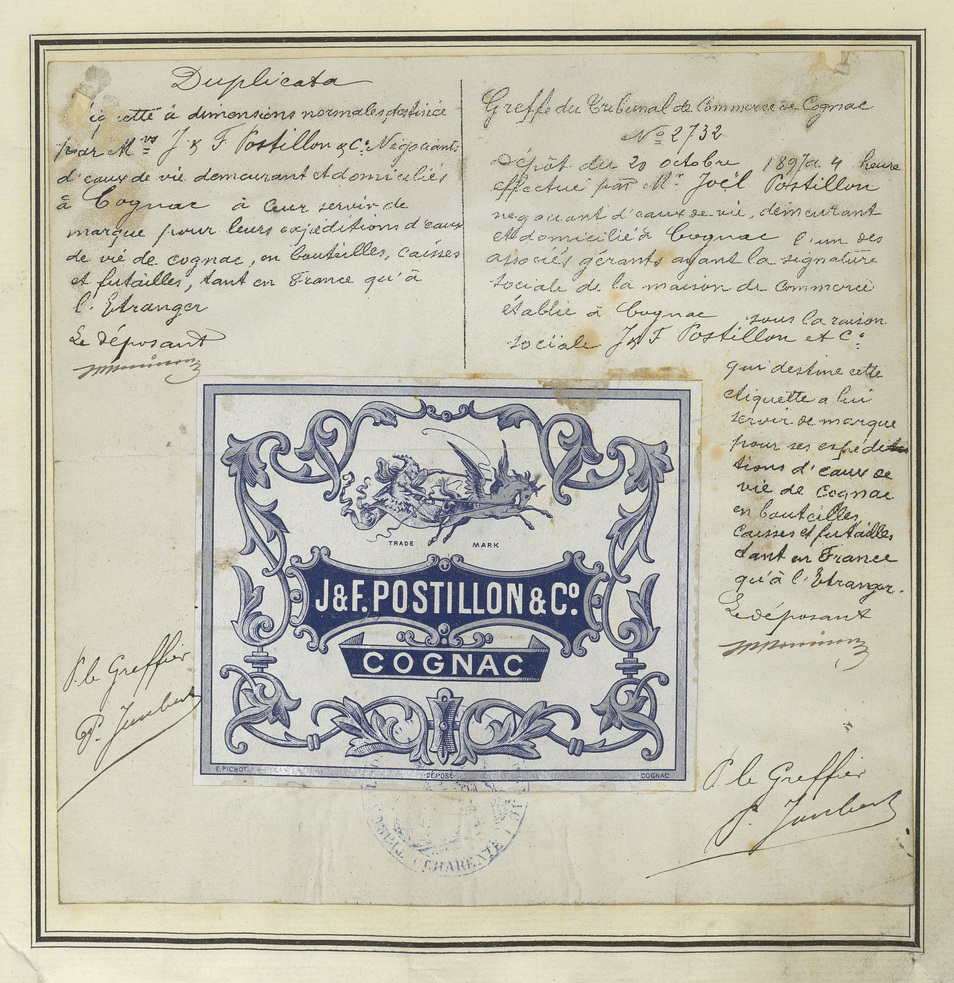 Duplicata
étiquette à dimensions normales destinée
par Mrs J & F Postillon & Co Négociants
d'eaux de vie demeurant et domiciliés
à Cognac à leur servir de
marque pour leurs expéditions d'eaux
de vie de cognac, en bouteilles, caisses
et futailles, tant en France qu'à
l'Etranger
Le déposant
Greffe du Tribunal de Commerce de Cognac
No 2732
Dépôt du 29 octobre 1897 à 4 heure
effectué par Mr Joël Postillon
négociant d'eaux de vie, demeurant
et domicilié à Cognac l'un des
associés gérants ayant la signature
sociale de la maison de commerce
établie à Cognac sous la raison
sociale J & F Postillon et Co
qui destine cette
étiquette a lui
servir de marque
pour ses expédi
tions d'eaux de
vie de Cognac
en bouteilles,
caisses et futailles
tant en France
qu'à l'Etranger.
Le déposant
TRADE MARK
J&F. POSTILLON & Co.
COGNAC
E. PICHOT DÉPOSÉ COGNAC
P. le Greffier
P. Jumbert
P. le Greffier
P. Jumbert
CHARENTE